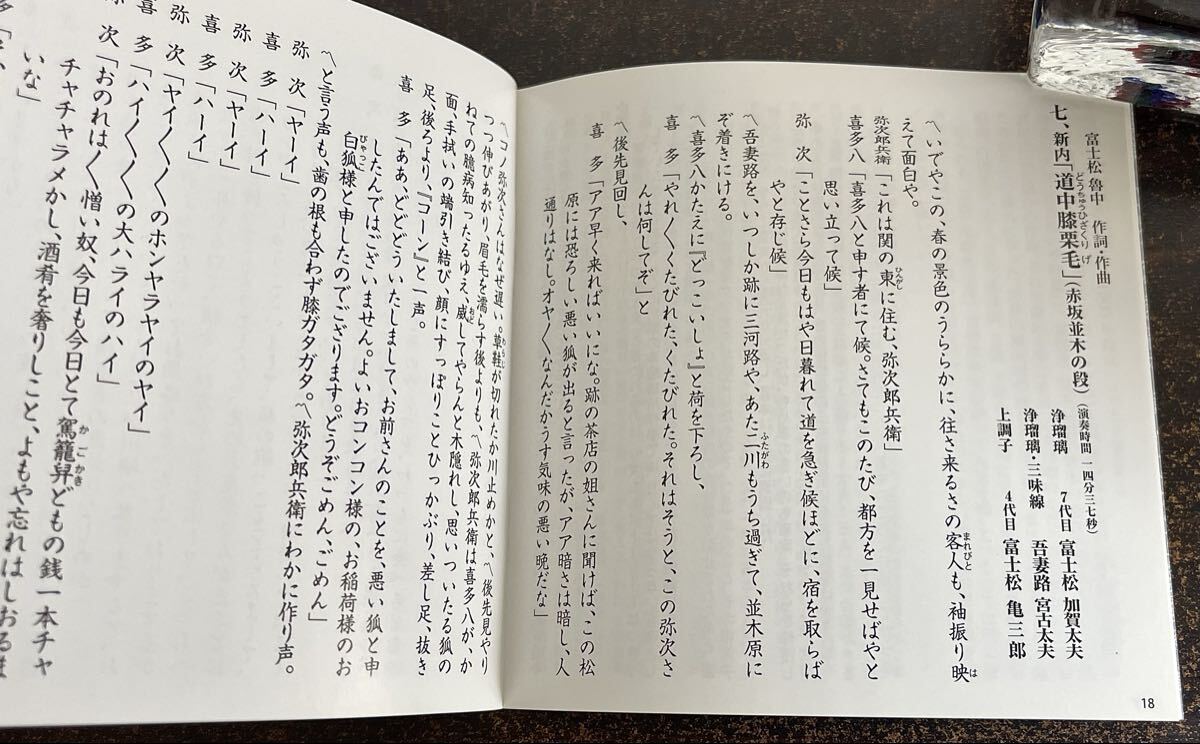 七、新内「道中膝栗毛」（赤坂並木の段）（演奏時間 一四分三七秒）
どうちゅうひざくりげ
富士松 魯中 作詞・作曲
浄瑠璃 7代目 富士松 加賀太夫
浄瑠璃・三味線 吾妻路 宮古太夫
上調子 4代目 富士松 亀三郎
〽いでやこの、春の景色のうららかに、往さ来るさの客人も、袖振り映
まれびと
は
えて面白や。
弥次郎兵衛「これは関の東に住む、弥次郎兵衛」
ひんがし
喜多八「喜多八と申す者にて候。さてもこのたび、都方を一見せばやと
思い立って候」
弥 次「ことさら今日もはや日暮れて道を急ぎ候ほどに、宿を取らば
やと存じ候」
〽吾妻路を、いつしか跡に三河路や、あた二川もうち過ぎて、並木原に
ふたがわ
ぞ着きにける。
〽喜多八かたえに『どっこいしょ』と荷を下ろし、
喜 多「やれ〳〵くたびれた、くたびれた。それはそうと、この弥次さ
んは何してぞ」と
〽後先見回し、
喜 多「アア早く来ればいいにな。跡の茶店の姐さんに聞けば、この松
原には恐ろしい悪い狐が出ると言ったが、アア暗さは暗し、人
通りはなし。オヤ〳〵なんだかうす気味の悪い晩だな」
18
〽コノ弥次さんはなぜ遅い。草鞋が切れたか川止めかと、〽後先見やり
わらじ
つつ伸びあがり、眉毛を濡らす後よりも、〽弥次郎兵衛は喜多八が、か
ねての臆病知ったるゆえ、威してやらんと木隠れし、思いついたる狐の
おど
面、手拭いの端引き結び、顔にすっぽりことひっかぶり、差し足、抜き
足、後ろより、『コーン』と一声。
喜 多「ああ、どどどういたしまして、お前さんのことを、悪い狐と申
したんではございません。よいおコンコン様の、お稲荷様のお
白狐様と申したのでござります。どうぞごめん、ごめん」
びゃっこ
〽と言う声も、歯の根も合わず膝ガタガタ。〽弥次郎兵衛にわかに作り声。
弥 次「ヤーイ」
喜 多「ハーイ」
弥 次「ヤーイ」
喜 多「ハーイ」
弥 次「ヤイ〳〵〳〵のホンヤラヤイのヤイ」
喜 多「ハイ〳〵〳〵の大ハライのハイ」
弥 次「おのれは〳〵、憎い奴、今日も今日とて駕籠舁どもの銭一本チャ
かごかき
チャチャラメかし、酒肴を奢りしこと、よもや忘れはしおるま
いな」